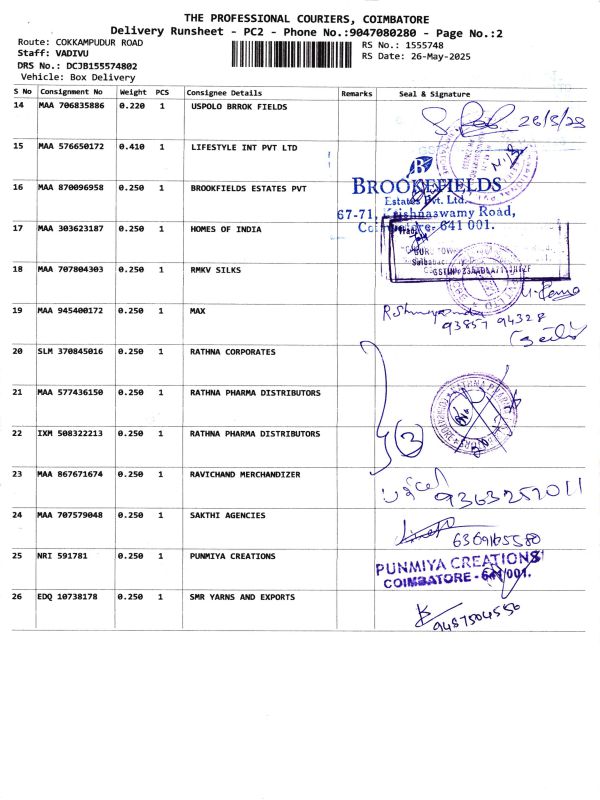 THE PROFESSIONAL COURIERS, COIMBATORE
Delivery Runsheet - PC2 - Phone No.:9047080280 - Page No.:2
Route: COKKAMPUDUR ROAD
Staff: VADIVU
DRS No.: DCJB155574802
Vehicle: Box Delivery
RS No.: 1555748
RS Date: 26-May-2025
S No Consignment No Weight PCS Consignee Details Remarks Seal & Signature
14 MAA 706835886 0.220 1 USPOLO BRROK FIELDS
15 MAA 576650172 0.410 1 LIFESTYLE INT PVT LTD
16 MAA 870096958 0.250 1 BROOKFIELDS ESTATES PVT
BROOKEFIELDS
Estates Pvt. Ltd.
67-71, Krishnaswamy Road,
Coimbatore- 641 001.
17 MAA 303623187 0.250 1 HOMES OF INDIA
18 MAA 707804303 0.250 1 RMKV SILKS
19 MAA 945400172 0.250 1 MAX
93857 94328
20 SLM 370845016 0.250 1 RATHNA CORPORATES
21 MAA 577436150 0.250 1 RATHNA PHARMA DISTRIBUTORS
22 IXM 508322213 0.250 1 RATHNA PHARMA DISTRIBUTORS
3
23 MAA 867671674 0.250 1 RAVICHAND MERCHANDIZER
9363257011
24 MAA 707579048 0.250 1 SAKTHI AGENCIES
6369165580
25 NRI 591781 0.250 1 PUNMIYA CREATIONS
PUNMIYA CREATIONS
COIMBATORE - 641 001.
26 EDQ 10738178 0.250 1 SMR YARNS AND EXPORTS
9487504556